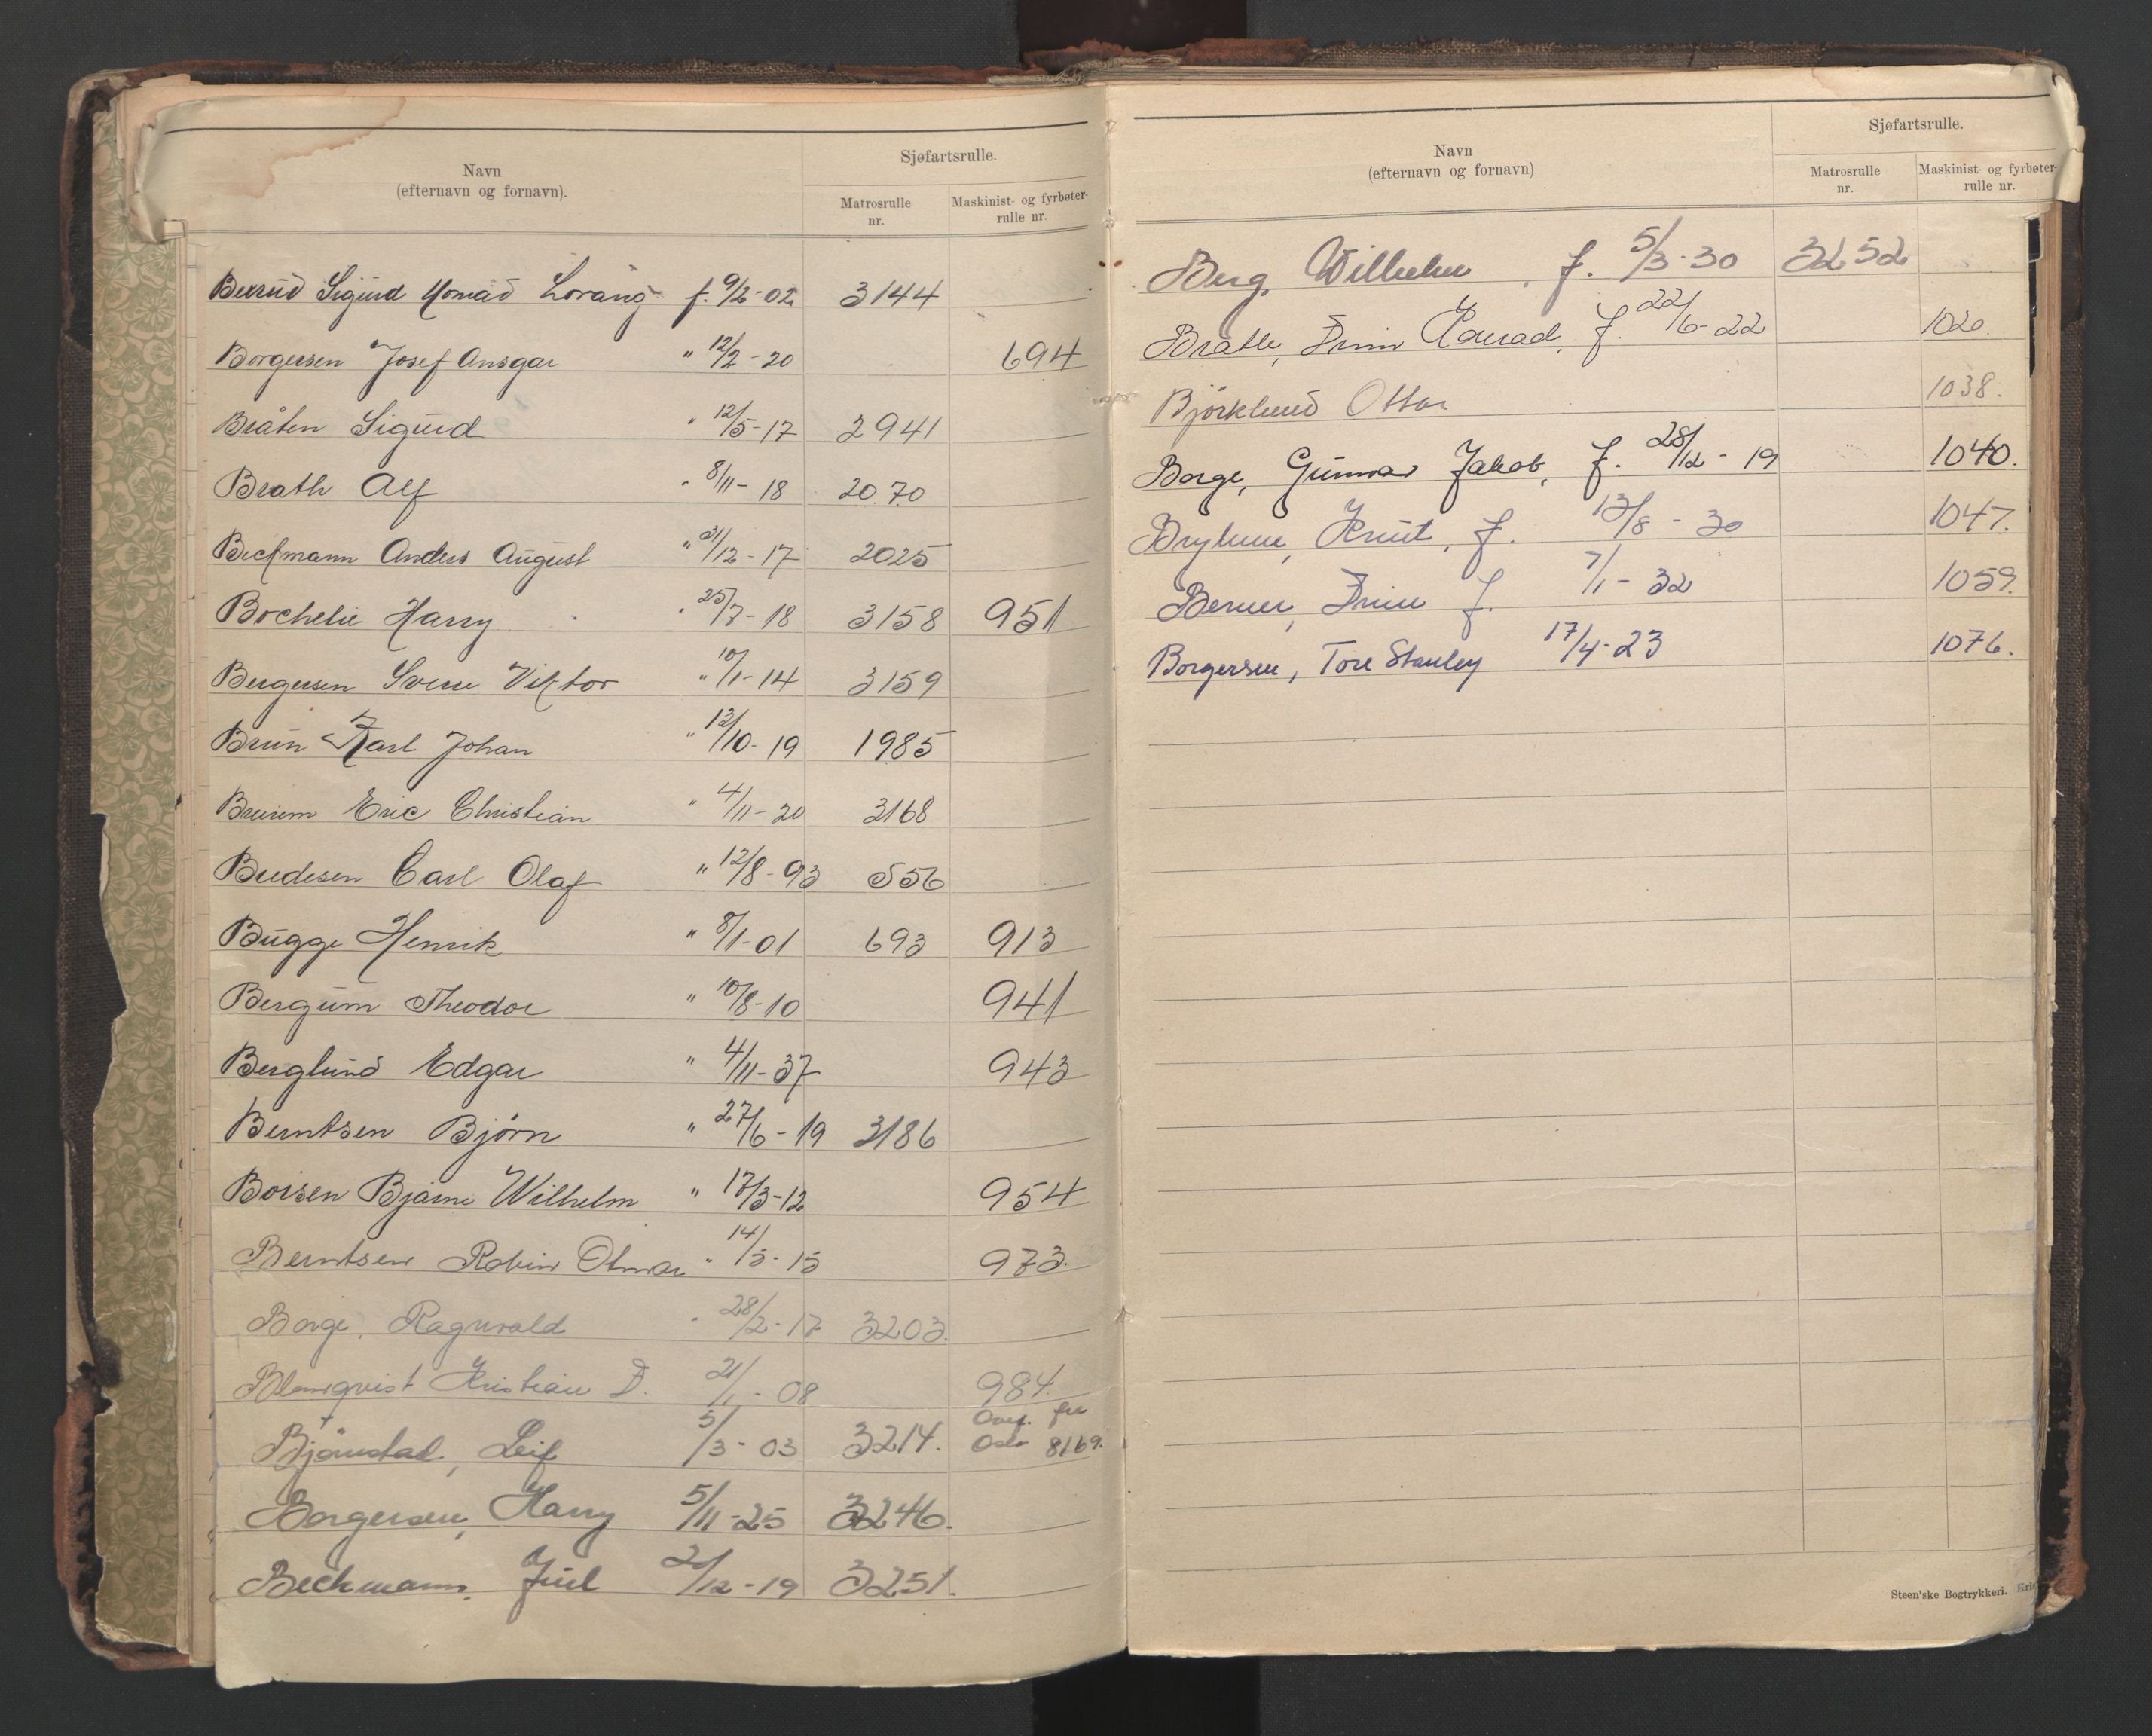 Navn
(efternavn og fornavn).
Sjøfartsrulle.
Matrosrulle
nr.
Maskinist- og fyrbøter-
rulle nr.
Sigurd Lorang f. 9/2-02 3144
Borgersen Josef Ansgar " 12/2-20 694
Bråten Sigurd " 12/5-17 2941
Brath Alf " 8/11-18 2070
Anders August " 31/12-17 2025
Bochelie Harry " 25/7-18 3158 951
Bergersen Sverre Viktor " 10/1-14 3159
Brun Karl Johan " 13/10-19 1985
Eric Christian " 4/11-20 3168
Carl Olaf " 12/8-93 556
Bugge Henrik " 8/1-01 693 913
Bergum Theodor " 10/8-10 941
Berglund Edgar " 4/11-37 943
Berntsen Bjørn " 27/6-19 3186
Boisen Bjarne Wilhelm " 17/3-12 954
Berntsen Robin Otmar " 14/5-15 973.
Borge, Ragnvald " 28/2-17 3203.
Blomqvist Kristian 21/1-08 984.
Bjørnstad, Leif 5/3-03 3214. Overf. fra
Oslo 8169.
Borgersen, Harry 5/11-25 3246.
Beckmann, Juul 2/12-19 3251.
Navn
(efternavn og fornavn).
Sjøfartsrulle.
Matrosrulle
nr.
Maskinist- og fyrbøter-
rulle nr.
Berg, Wilhelm, f. 5/3-30 3252
Bråtle, Finn Konrad, f. 22/6-22 1020.
Bjørklund Ottar 1038.
Borge, Gunnar Jakob, f. 28/12-19 1040.
Knut, f. 13/8-30 1047.
Berner, Finn f. 7/1-32 1059.
Borgersen, Tore Stanley 17/4-23 1076.
Steen'ske Bogtrykkeri. Kri